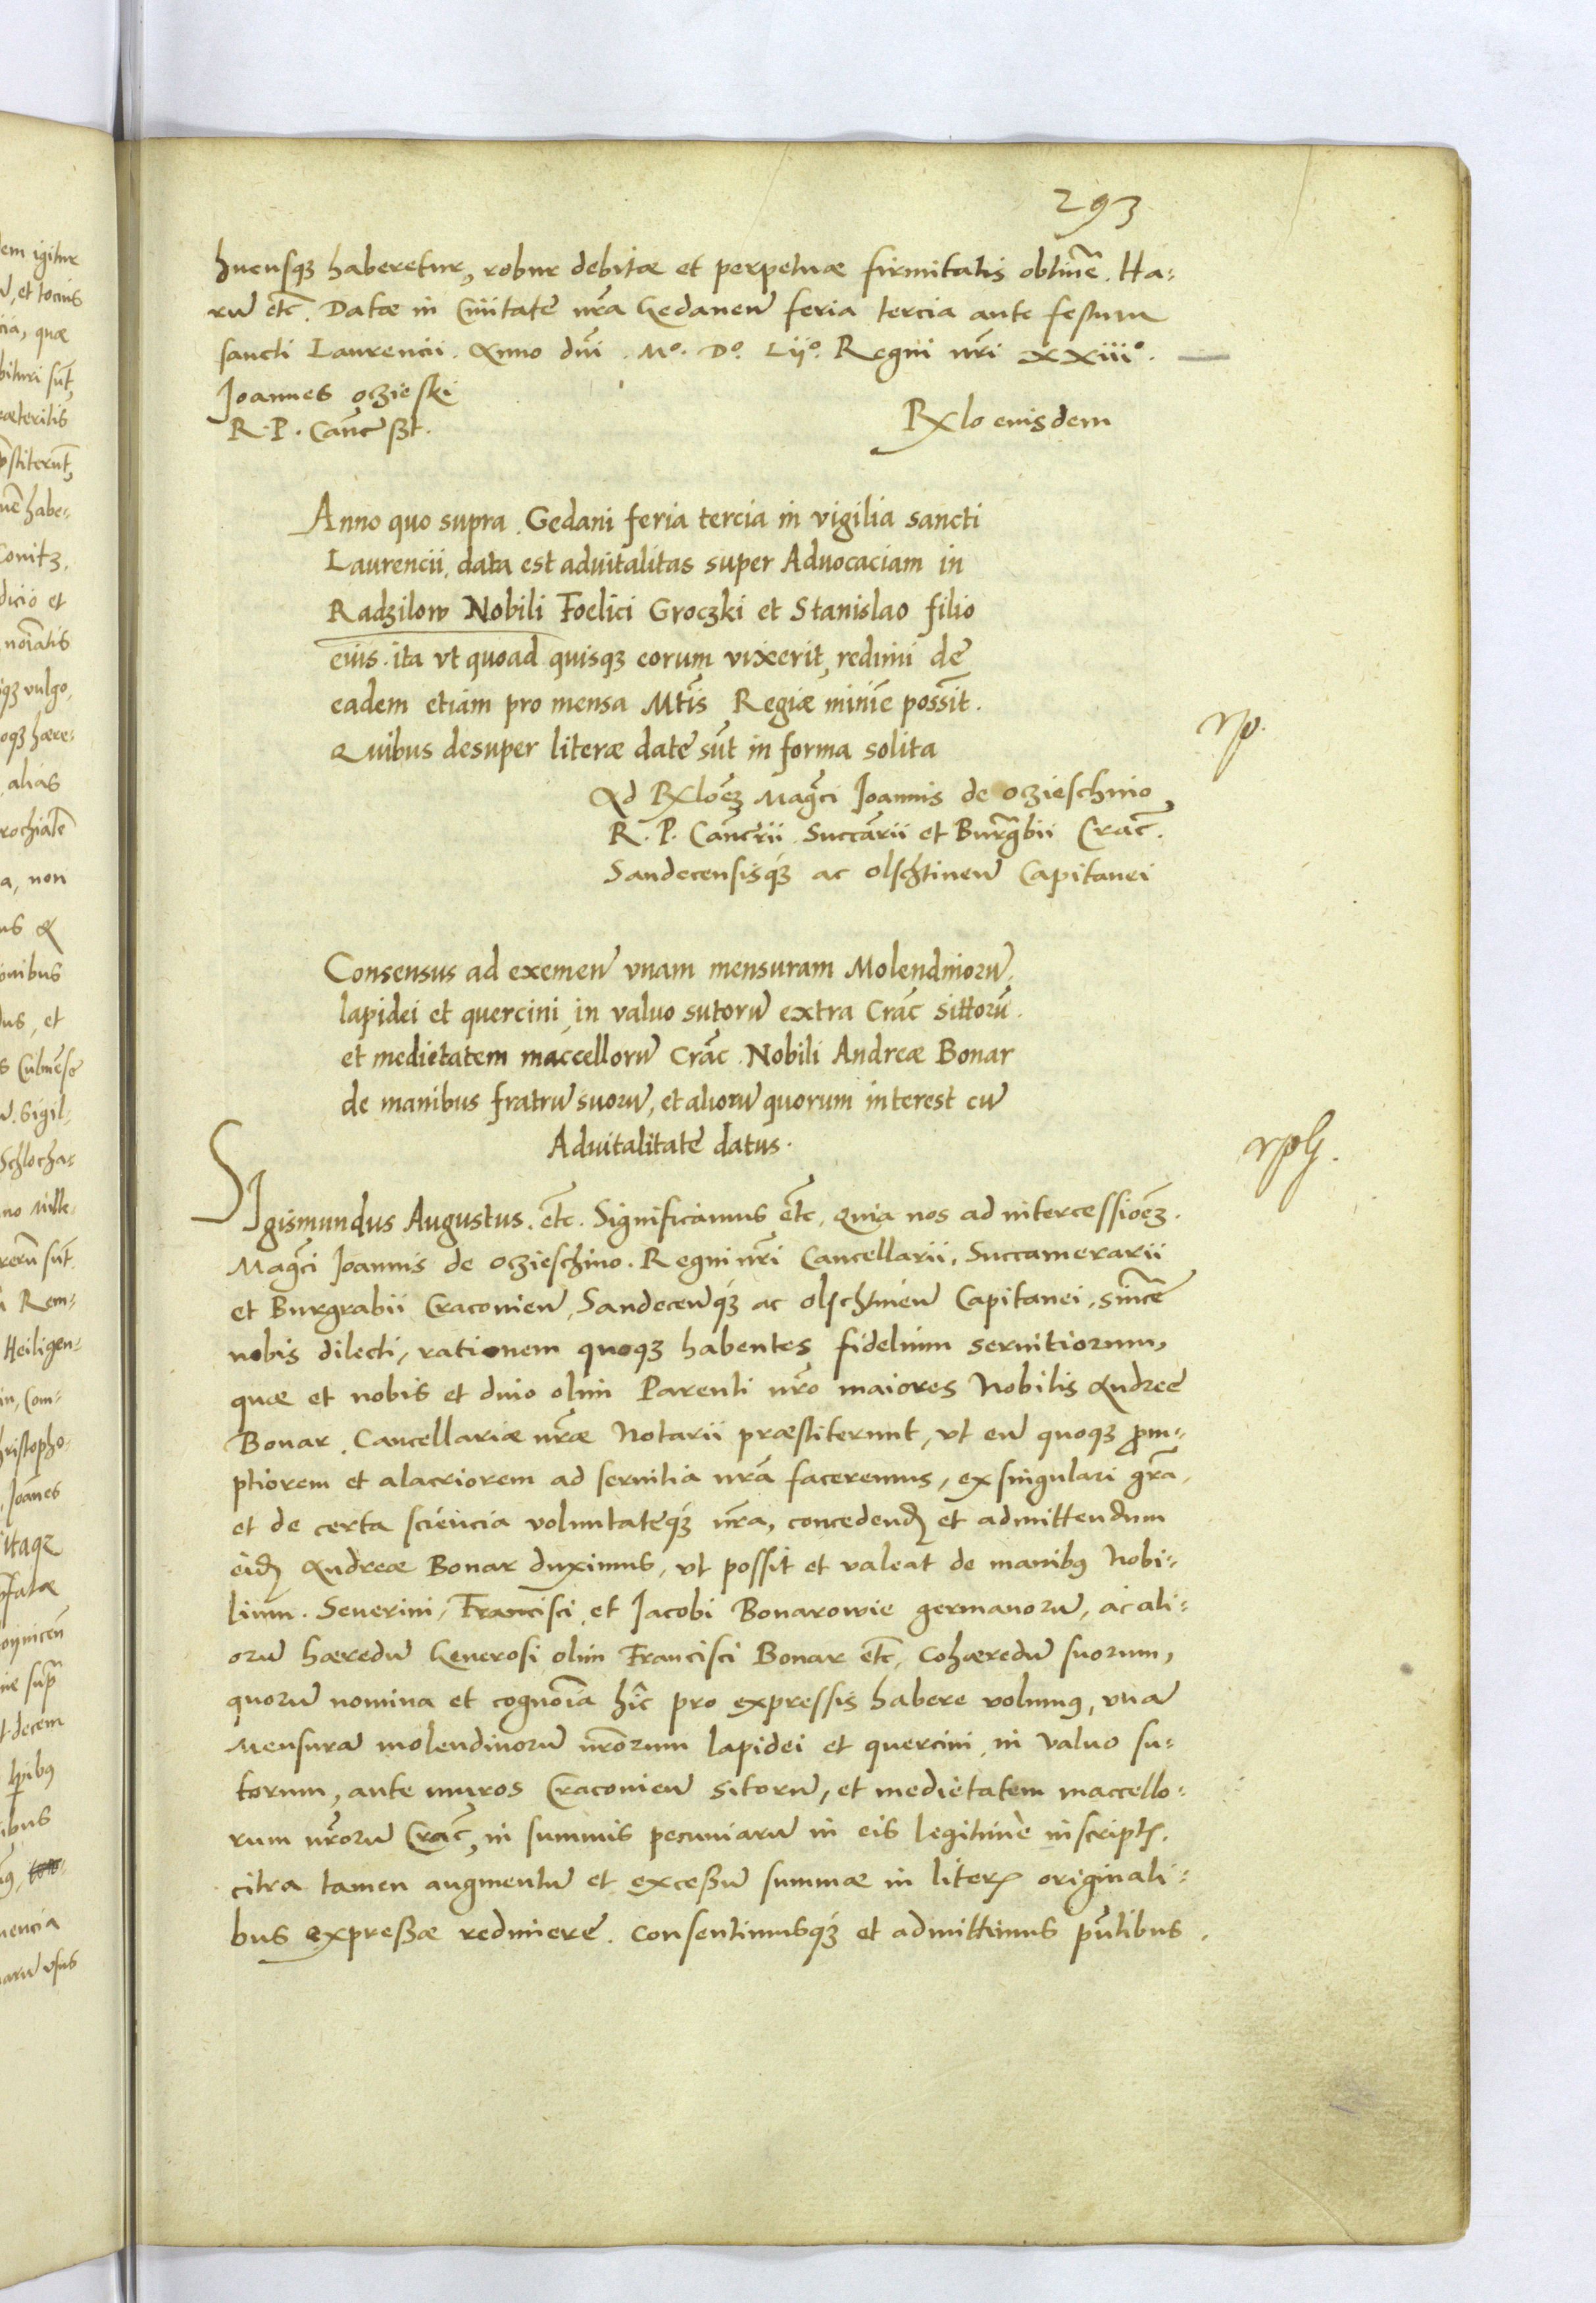 293
hucusq3 haberetur, robur debitæ et perpetuæ firmitatis obtinẽ. Ha-
rũ etc̃. Datæ in Ciuitate nr̃a Gedaneñ feria tercia ante festum
sancti Laurencii. Anno dñi. Mº. Dº. Lijº. Regni nr̃i XXiiiº.
Joannes oczieski
R. P. Canc̃ sst.
Rx̃lo eiusdem
Anno quo supra. Gedani feria tercia in vigilia sancti
Laurencii, data est aduitalitas super Aduocaciam in
Radzilow Nobili Foelici Groczki et Stanislao filio
eius. ita vt quoad quisq3 eorum vixerit, redimi de
eadem etiam pro mensa Mt̃is Regiæ minĩe possĩt.
Quibus desuper literæ datẽ sũt in forma solita
Ad Rx̃loẽ3 Mag̃ci Joannis de oczieschino
R. P. Canc̃rii Succãrii et Burg̃bii Crac̃.
Sandecensisq3 ac olschtineñ Capitanei
Consensus ad exemeñ vnam mensuram Molendinorũ,
lapidei et quercini, in valuo sutorũ extra Crac̃ sittorũ.
et medietatem maccellorũ Crac̃. Nobili Andreæ Bonar
de manibus fratrũ suorũ, et aliorũ quorum interest cũ
Aduitalitate datus.
SIgismundus Augustus. etc̃. Significamus etc̃, quia nos ad intercessioẽ3.
Mag̃ci Joannis de oczieschino. Regni nr̃i Cancellarii, Succamerarii
et Burgrabii Cracovieñ, Sandeceñq3 ac olschtineñ Capitanei, sincẽ
nobis dilecti, rationem quoq3 habentes fidelium seruitiorum,
quæ et nobis et diuo olim Parenti nr̃o maiores Nobilis Andreẽ
Bonar, Cancellariæ nr̃æ Notarii præstiterunt, vt eũ quoq3 prom-
ptiorem et alacriorem ad seruitia nr̃a faceremus, ex singulari gr̃a,
et de certa sciencia voluntateq3 nr̃a, concedend̃ et admittendum
eid̃ Andreæ Bonar duximus, vt possit et valeat de manibꝰ Nobi-
lium. Seuerini, Francisci et Jacobi Bonarowie germanorũ, ac ali-
orũ hæredũ Generosi olim Francisci Bonar etc̃, Cohæredũ suorum,
quorũ nomina et cognoĩa hîc pro expressis habere volumꝰ, vnã
Mensurã molendinorũ nr̃orum lapidei et quercini, in valuo su-
torum, ante muros Cracovieñ sitorũ, et medietatem maccello-
rum nr̃orũ Crac̃, in summis pecuniarũ in eis legitime inscriptꝭ.
citra tamen augmentũ et excessũ summæ in literꝭ originali-
bus expressæ redimere. Consentimusq3 et admittimus pñtibus.
rp.